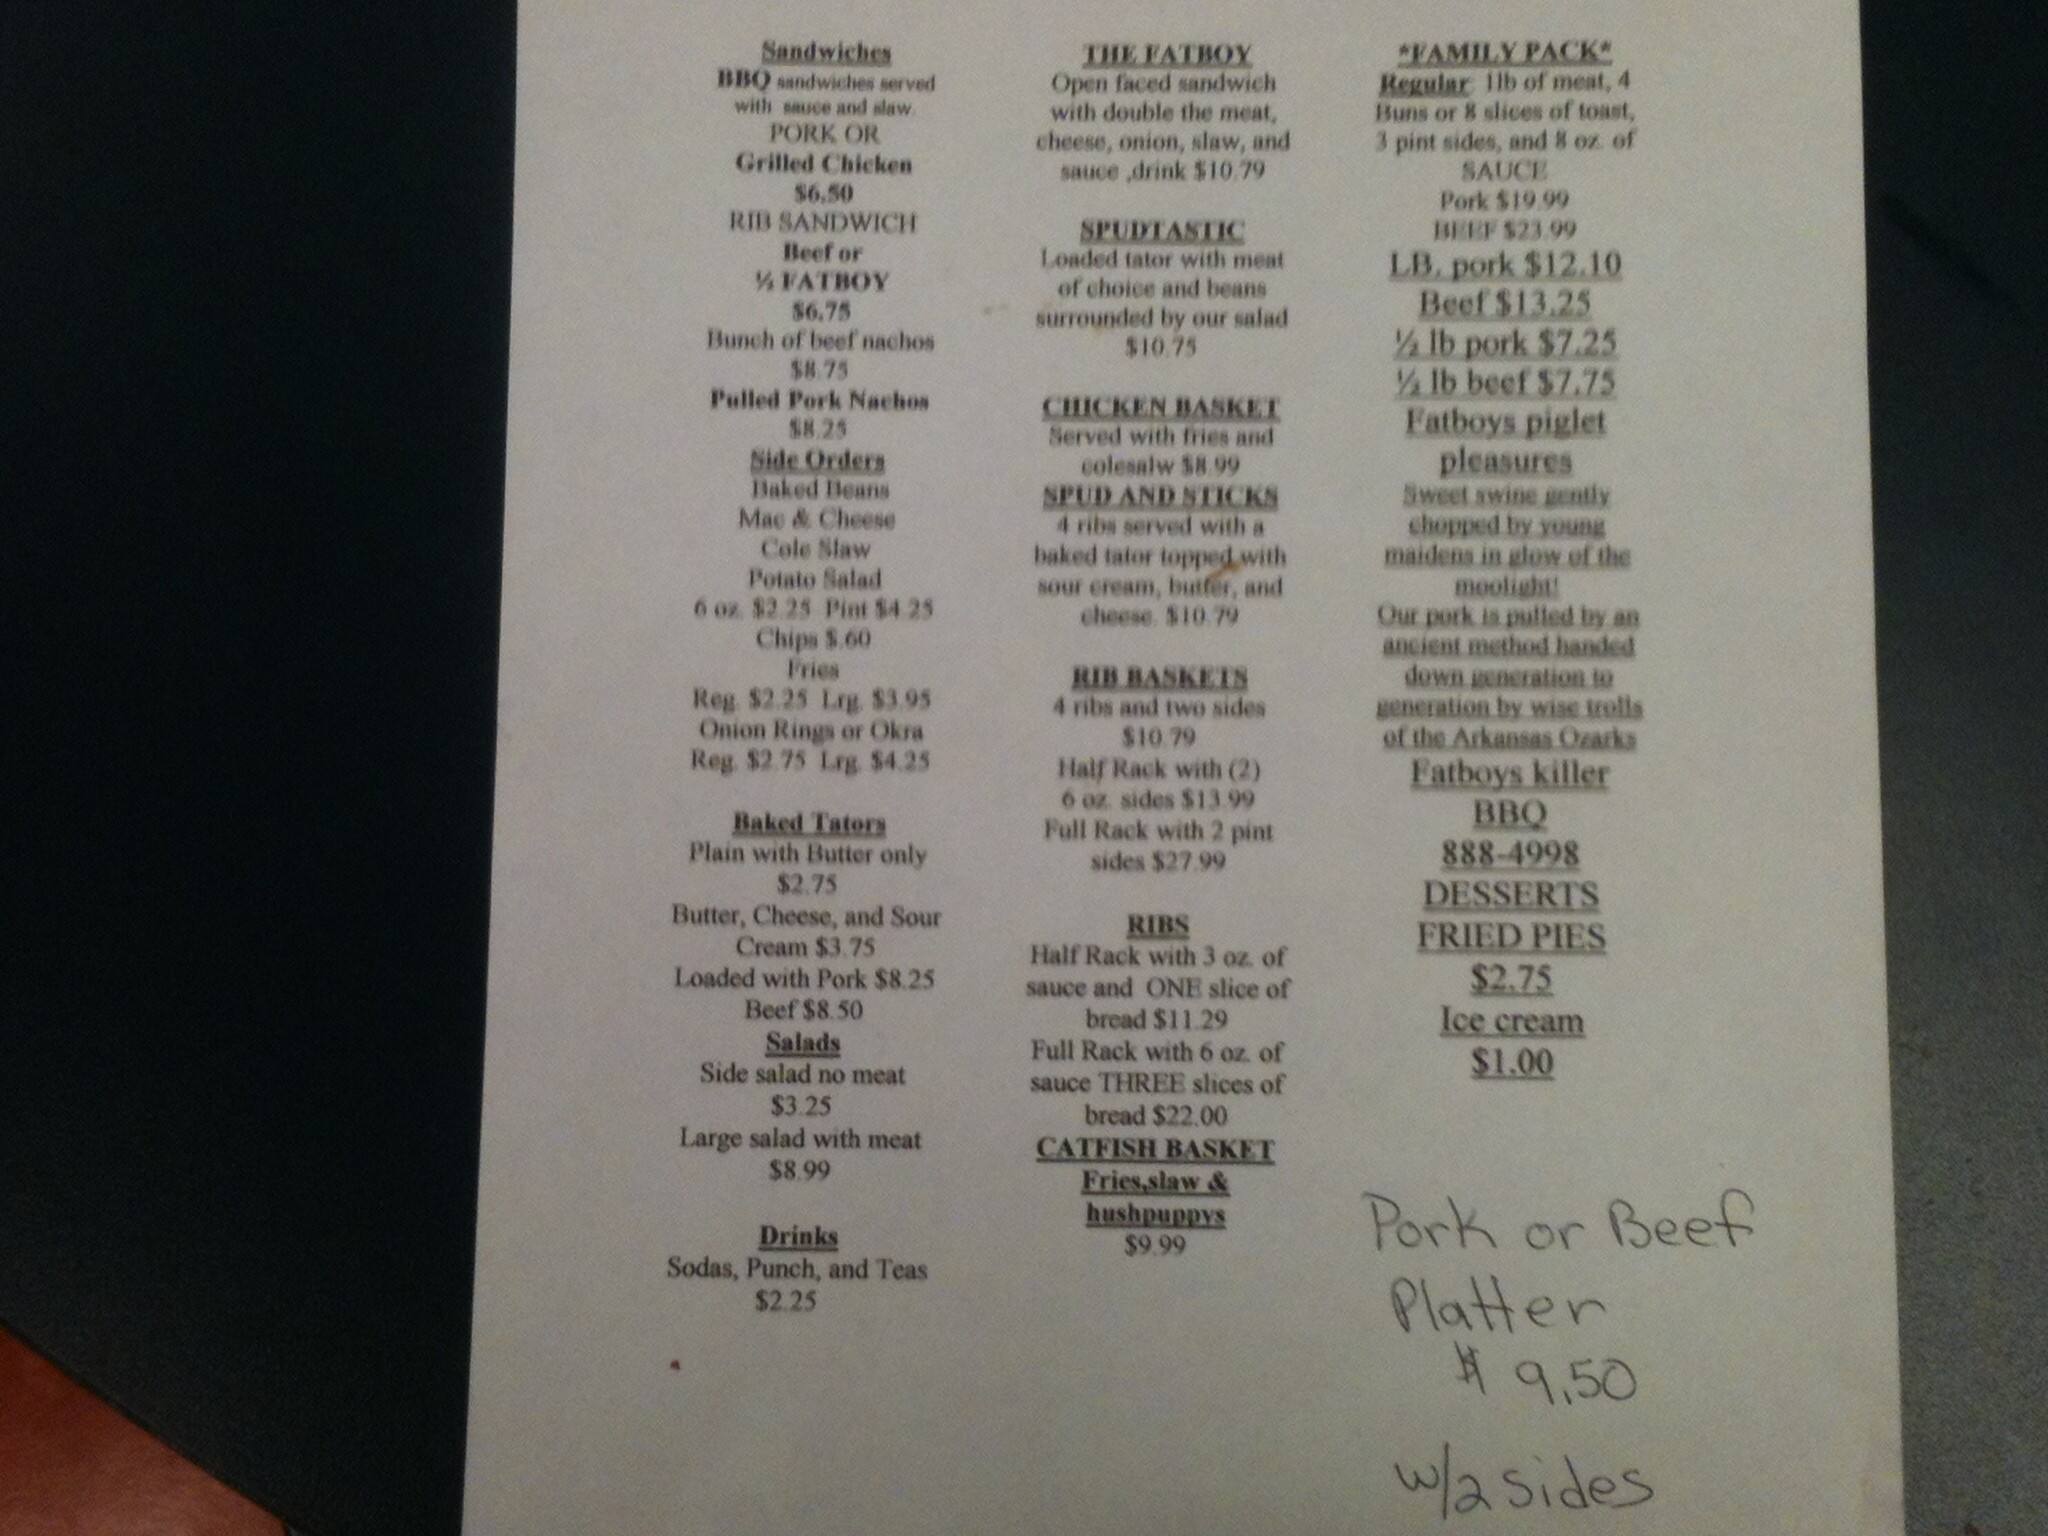 Sandwiches
BBQ sandwiches served
with sauce and slaw.
PORK OR
Grilled Chicken
$6.50
RIB SANDWICH
Beef or
½ FATBOY
$6.75
Bunch of beef nachos
$8.75
Pulled Pork Nachos
$8.25
Side Orders
Baked Beans
Mac & Cheese
Cole Slaw
Potato Salad
6 oz. $2.25 Pint $4.25
Chips $.60
Fries
Reg. $2.25 Lrg. $3.95
Onion Rings or Okra
Reg. $2.75 Lrg. $4.25
Baked Tators
Plain with Butter only
$2.75
Butter, Cheese, and Sour
Cream $3.75
Loaded with Pork $8.25
Beef $8.50
Salads
Side salad no meat
$3.25
Large salad with meat
$8.99
Drinks
Sodas, Punch, and Teas
$2.25
THE FATBOY
Open faced sandwich
with double the meat,
cheese, onion, slaw, and
sauce ,drink $10.79
SPUDTASTIC
Loaded tator with meat
of choice and beans
surrounded by our salad
$10.75
CHICKEN BASKET
Served with fries and
colesalw $8.99
SPUD AND STICKS
4 ribs served with a
baked tator topped with
sour cream, butter, and
cheese. $10.79
RIB BASKETS
4 ribs and two sides
$10.79
Half Rack with (2)
6 oz. sides $13.99
Full Rack with 2 pint
sides $27.99
RIBS
Half Rack with 3 oz. of
sauce and ONE slice of
bread $11.29
Full Rack with 6 oz. of
sauce THREE slices of
bread $22.00
CATFISH BASKET
Fries,slaw &
hushpuppys
$9.99
*FAMILY PACK*
Regular 1lb of meat, 4
Buns or 8 slices of toast,
3 pint sides, and 8 oz. of
SAUCE
Pork $19.99
BEEF $23.99
LB. pork $12.10
Beef $13.25
½ lb pork $7.25
½ lb beef $7.75
Fatboys piglet
pleasures
Sweet swine gently
chopped by young
maidens in glow of the
moolight!
Our pork is pulled by an
ancient method handed
down generation to
generation by wise trolls
of the Arkansas Ozarks
Fatboys killer
BBQ
888-4998
DESSERTS
FRIED PIES
$2.75
Ice cream
$1.00
Pork or Beef
Platter
$ 9.50
w/2 sides